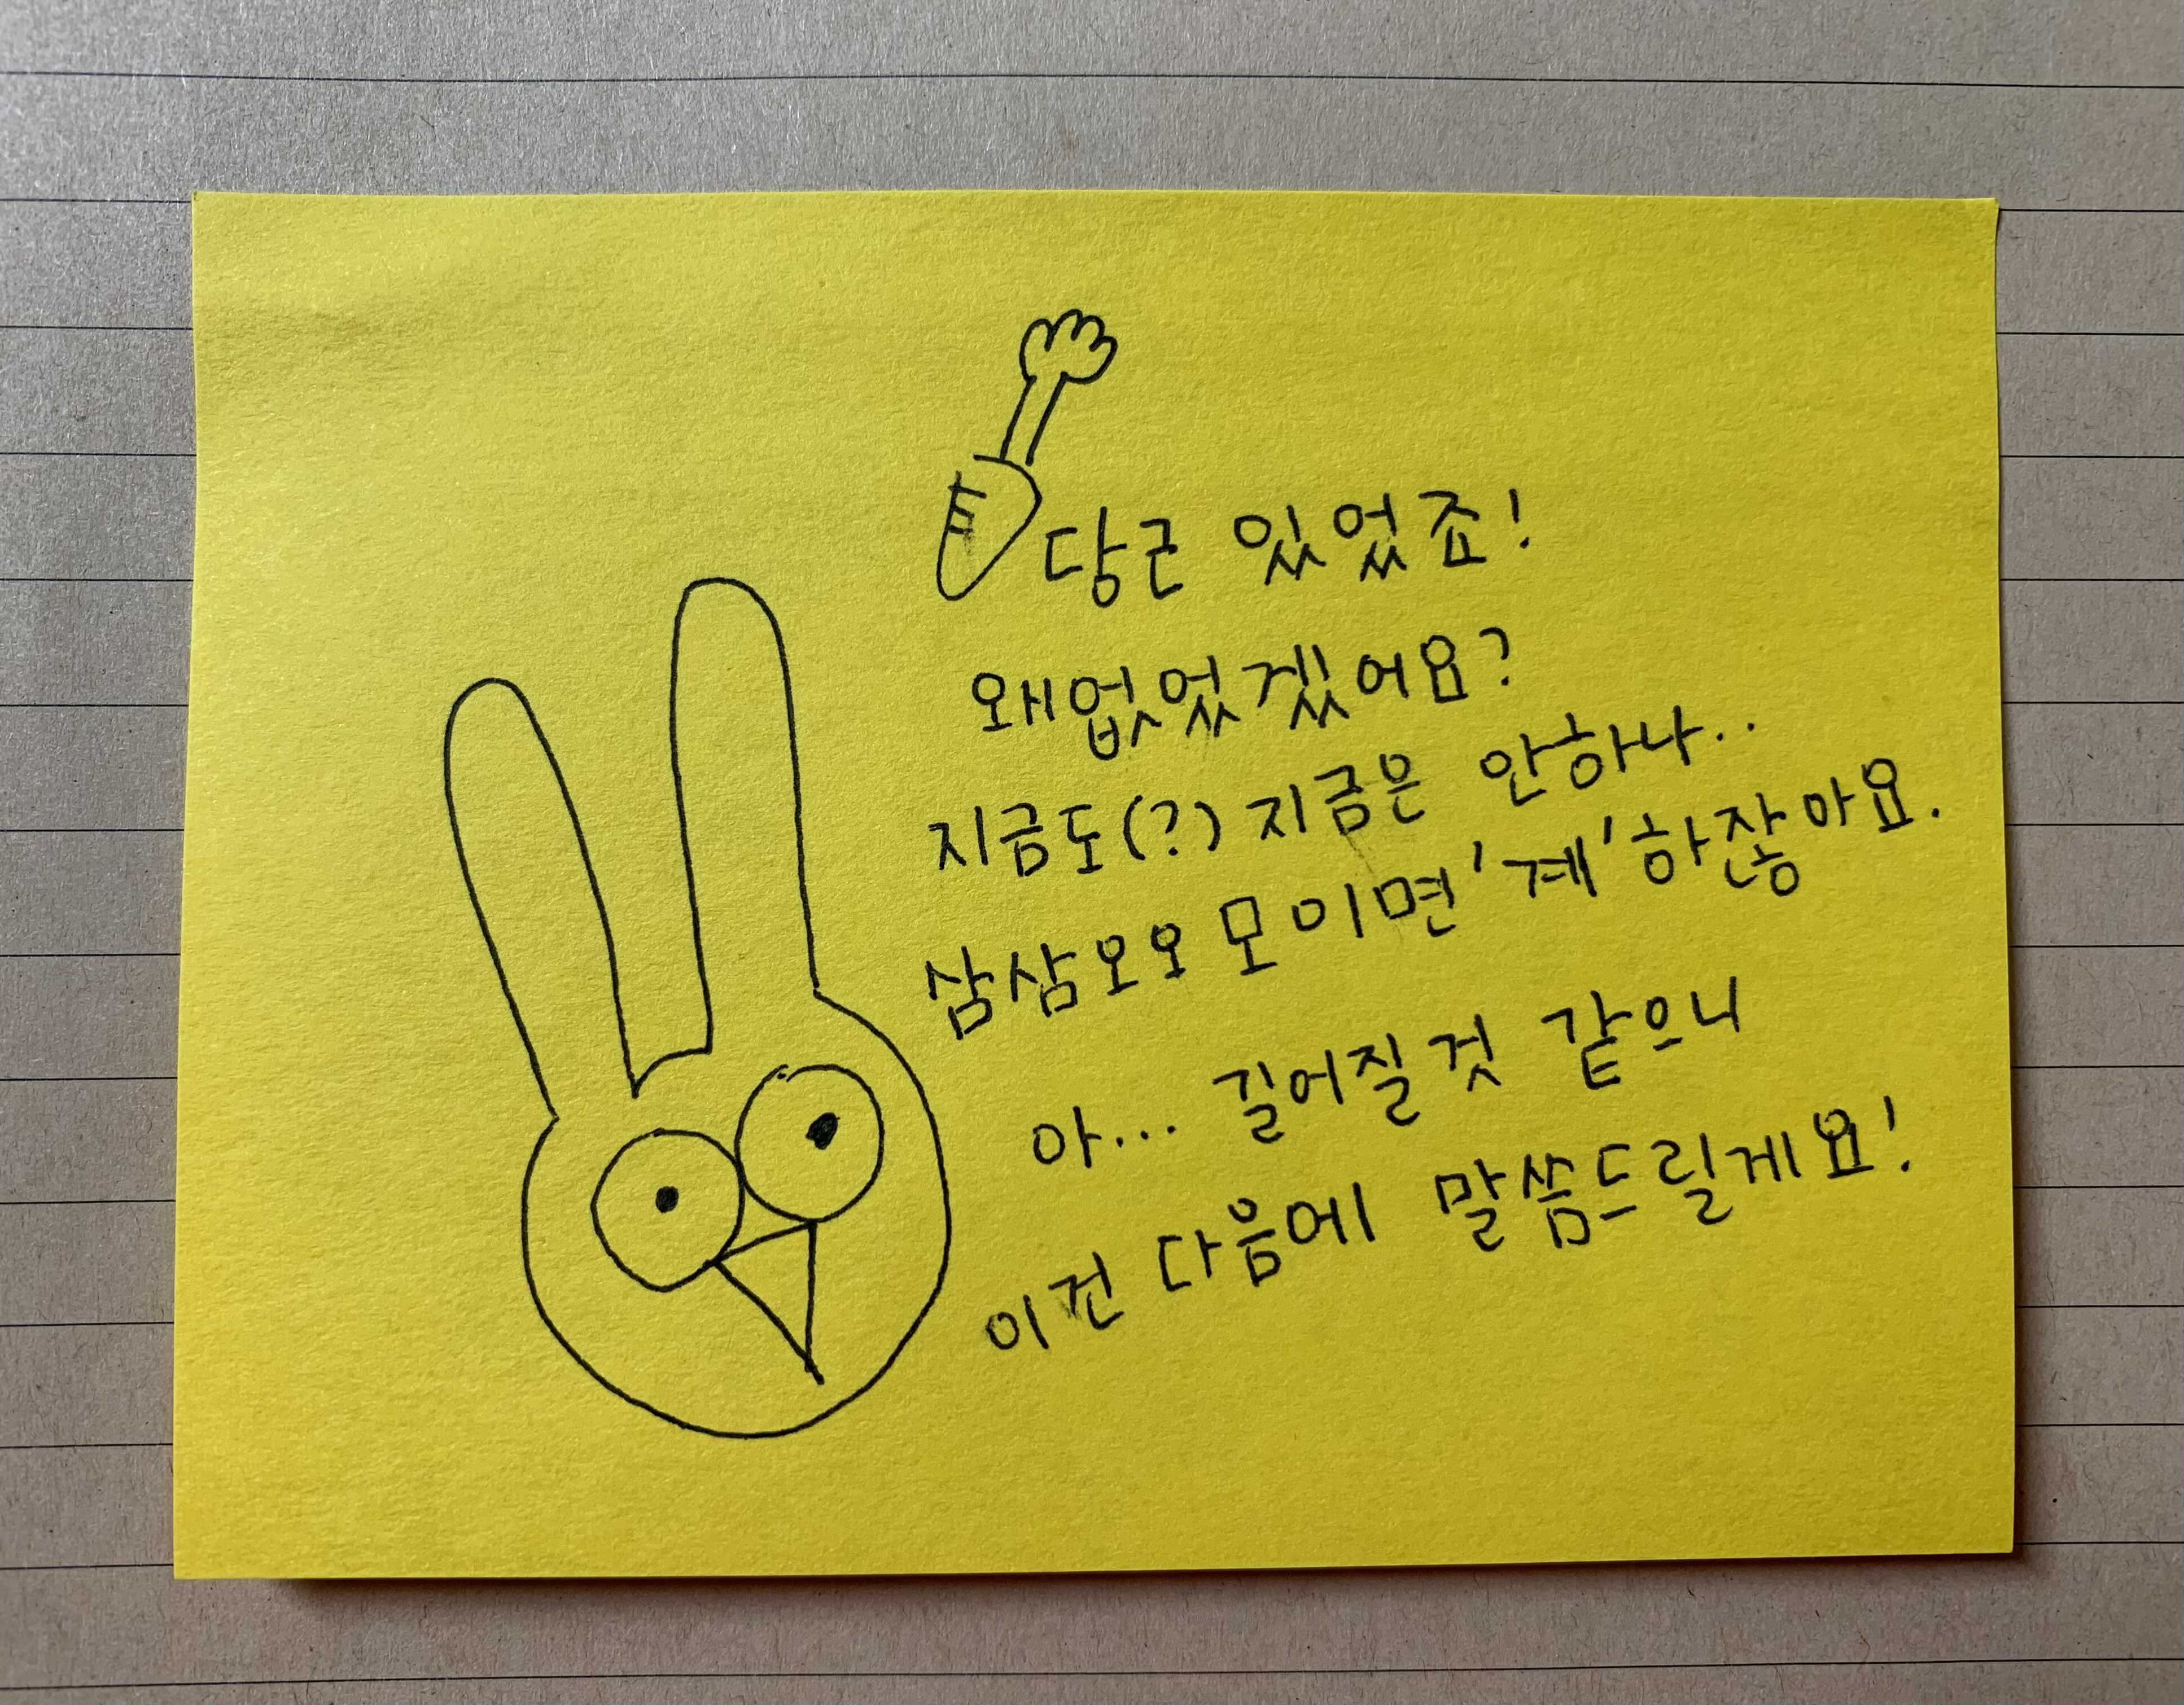 당근 있었죠!
왜없었겠어요?
지금도(?) 지금은 안하나..
삼삼오오 모이면 '계' 하잖아요.
아... 길어질것 같으니
이건 다음에 말씀드릴게요!